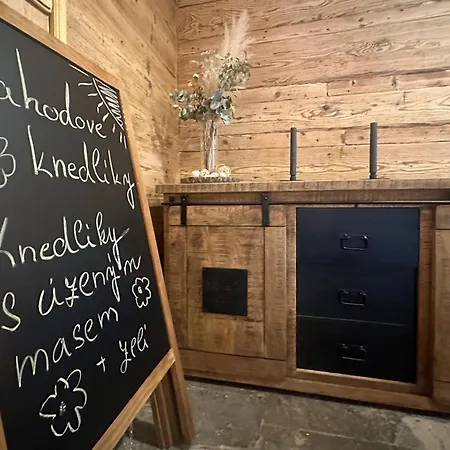 ahodové
knedlíky
Knedlíky
s uzeným
masem
+ zelí